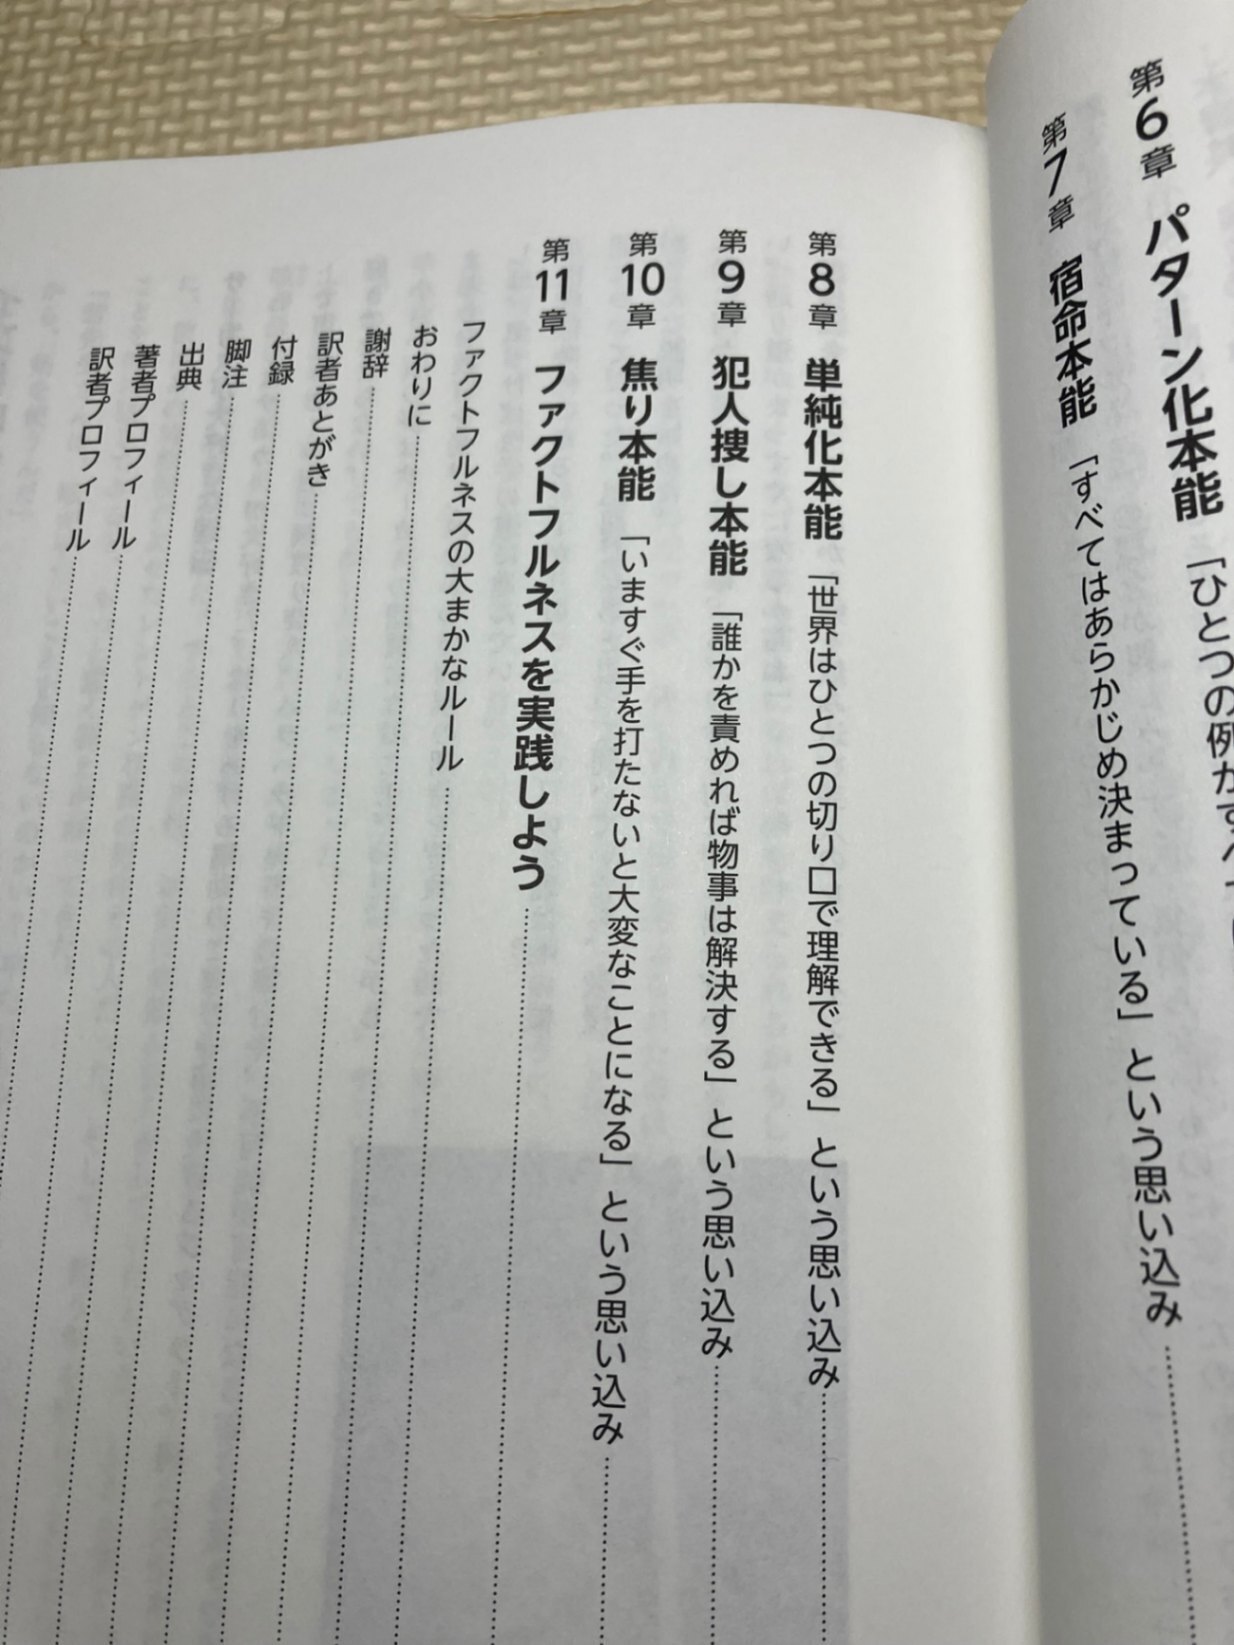 第6章 パターン化本能 「ひとつの例がすべて
第7章 宿命本能 「すべてはあらかじめ決まっている」という思い込み
第8章 単純化本能 「世界はひとつの切り口で理解できる」という思い込み
第9章 犯人捜し本能 「誰かを責めれば物事は解決する」という思い込み
第10章 焦り本能 「いますぐ手を打たないと大変なことになる」という思い込み
第11章 ファクトフルネスを実践しよう
ファクトフルネスの大まかなルール
おわりに
謝辞
訳者あとがき
付録
脚注
出典
著者プロフィール
訳者プロフィール